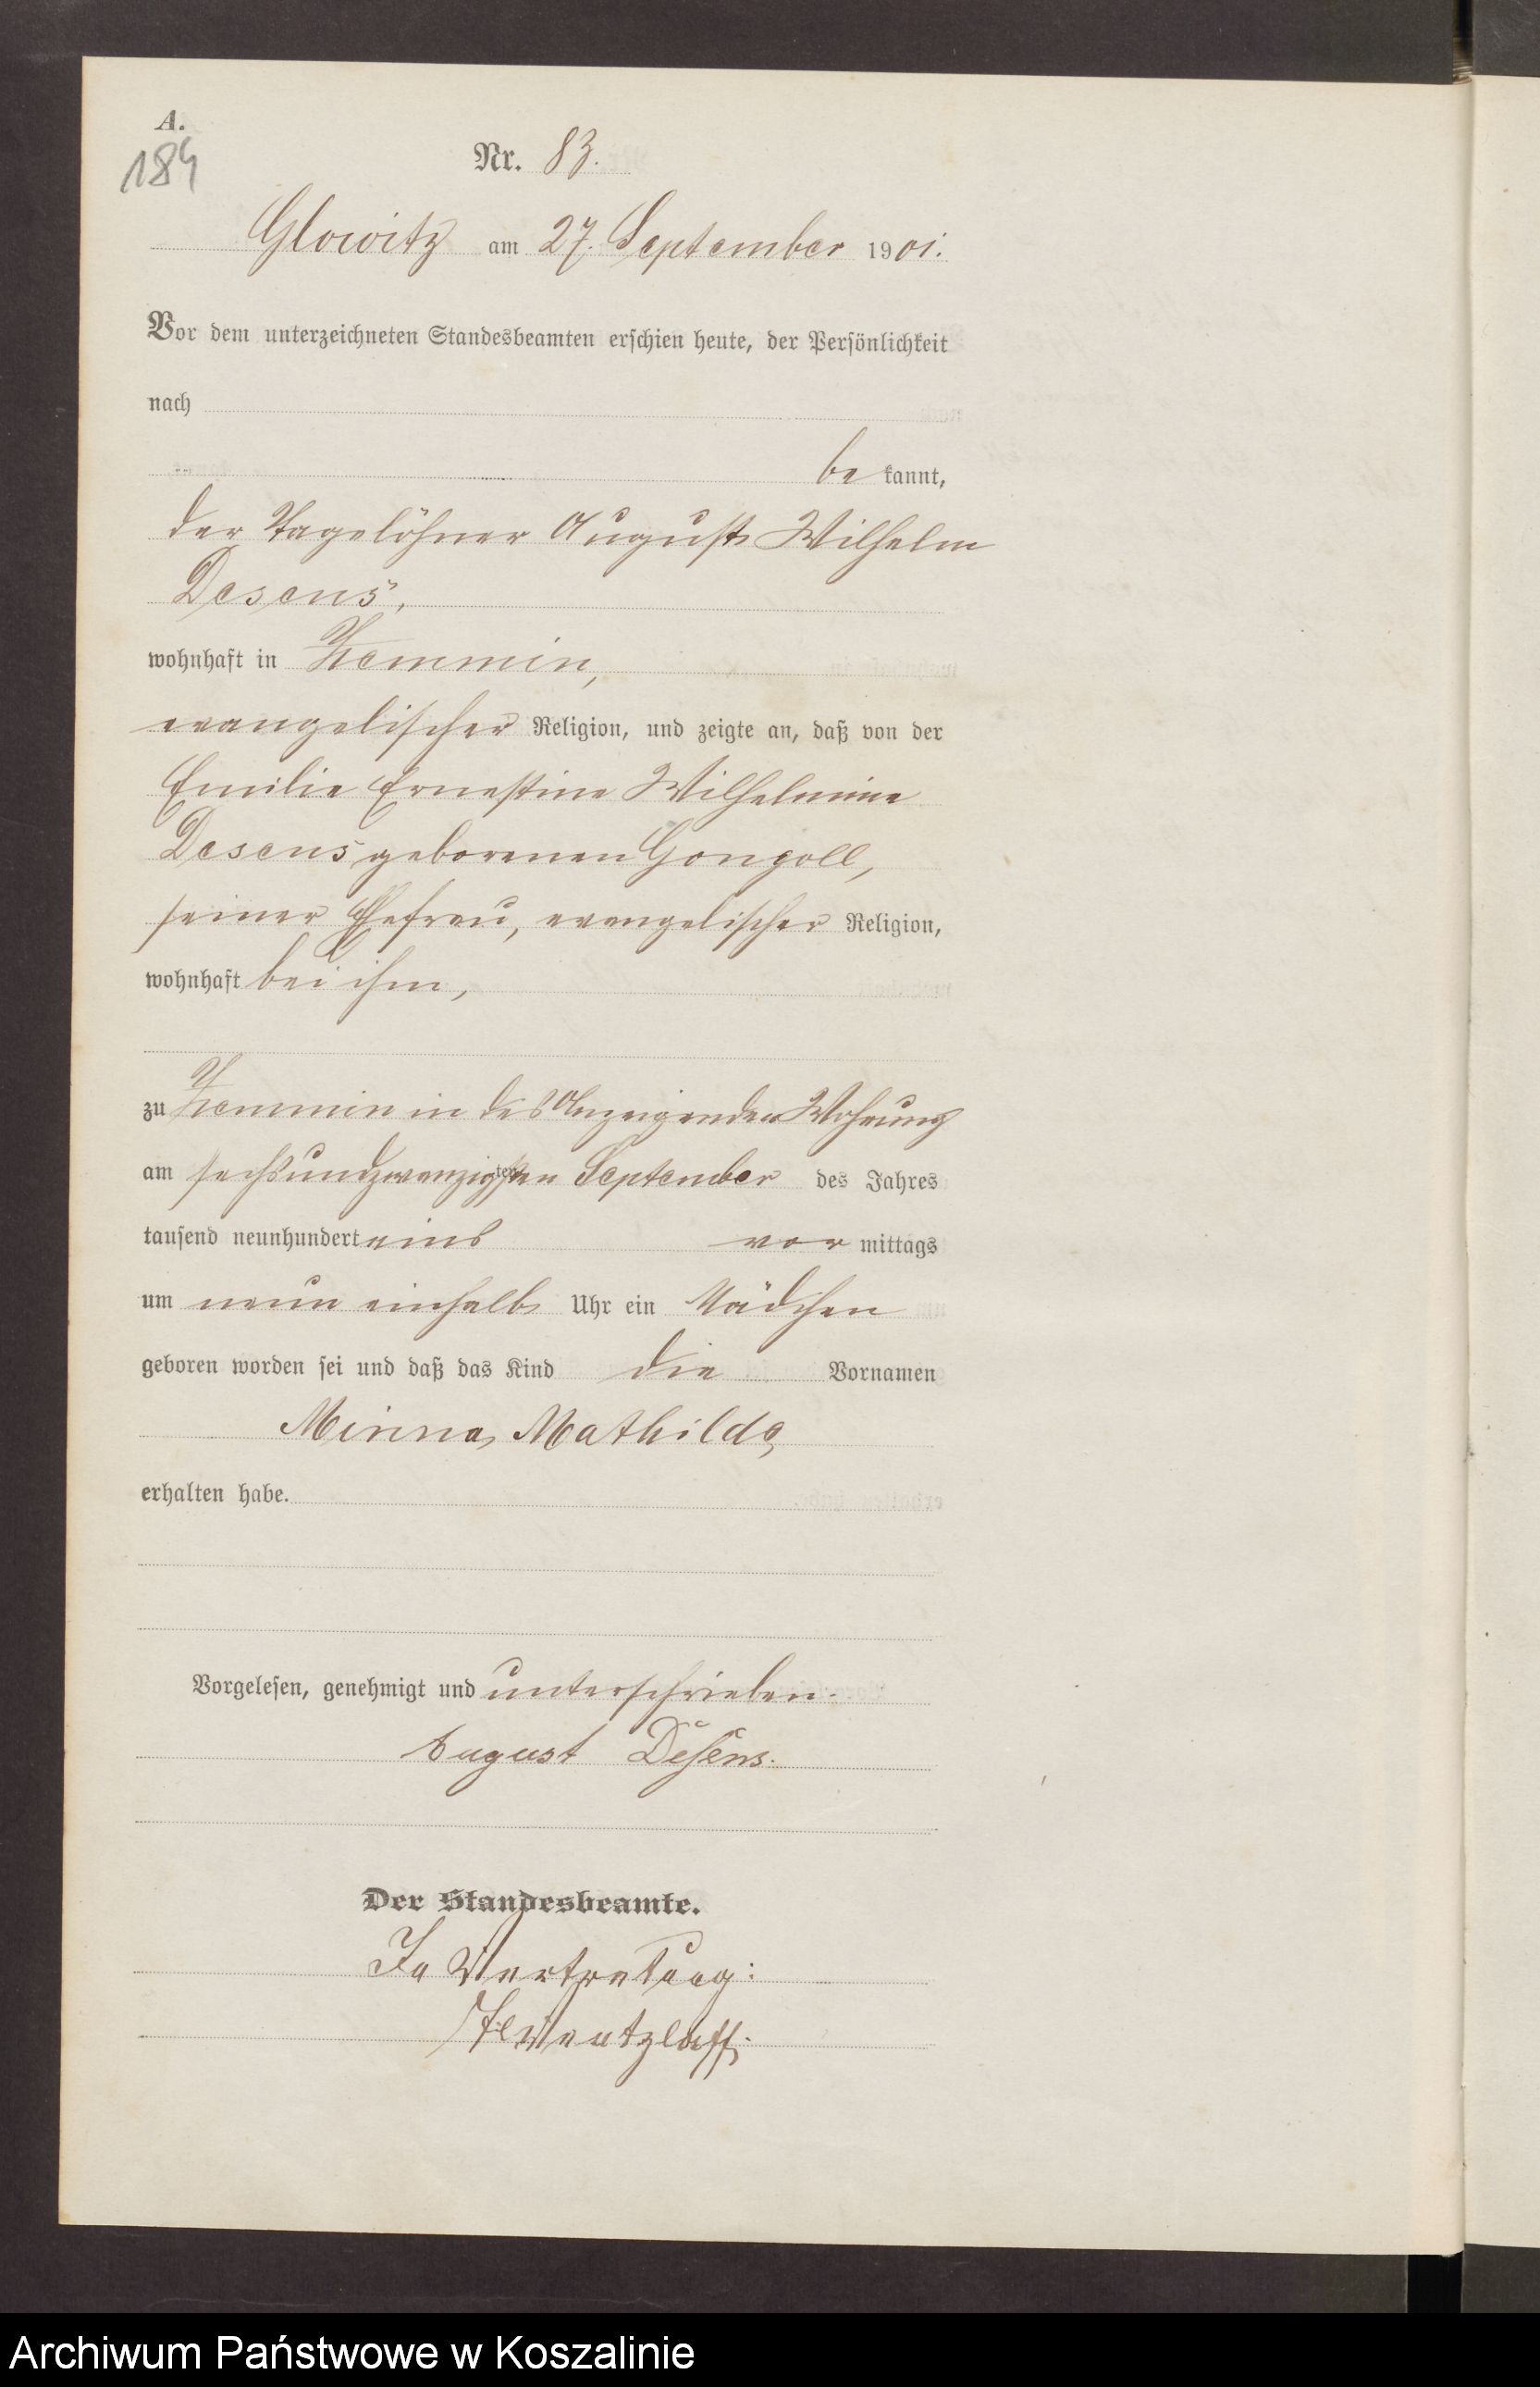 A.
184
Nr. 83.
Glowitz am 27. September 1901.
Vor dem unterzeichneten Standesbeamten erschien heute, der Persönlichkeit
nach
be kannt,
der Tagelöhner August Wilhelm
Desens,
wohnhaft in Zemmin,
evangelischer Religion, und zeigte an, daß von der
Emilie Ernestine Wilhelmine
Desens geborenen Gongoll,
seiner Ehefrau, evangelischer Religion,
wohnhaft bei ihm,
zu Zemmin in des Anzeigenden Wohnung
am sechsundzwanzigsten September des Jahres
tausend neunhundert eins vor mittags
um neun einhalb Uhr ein Mädchen
geboren worden sei und daß das Kind die Vornamen
Minna Mathilde,
erhalten habe.
Vorgelesen, genehmigt und unterschrieben.
August Desens.
Der Standesbeamte.
In Vertretung:
Wentzlaff.
Archiwum Państwowe w Koszalinie